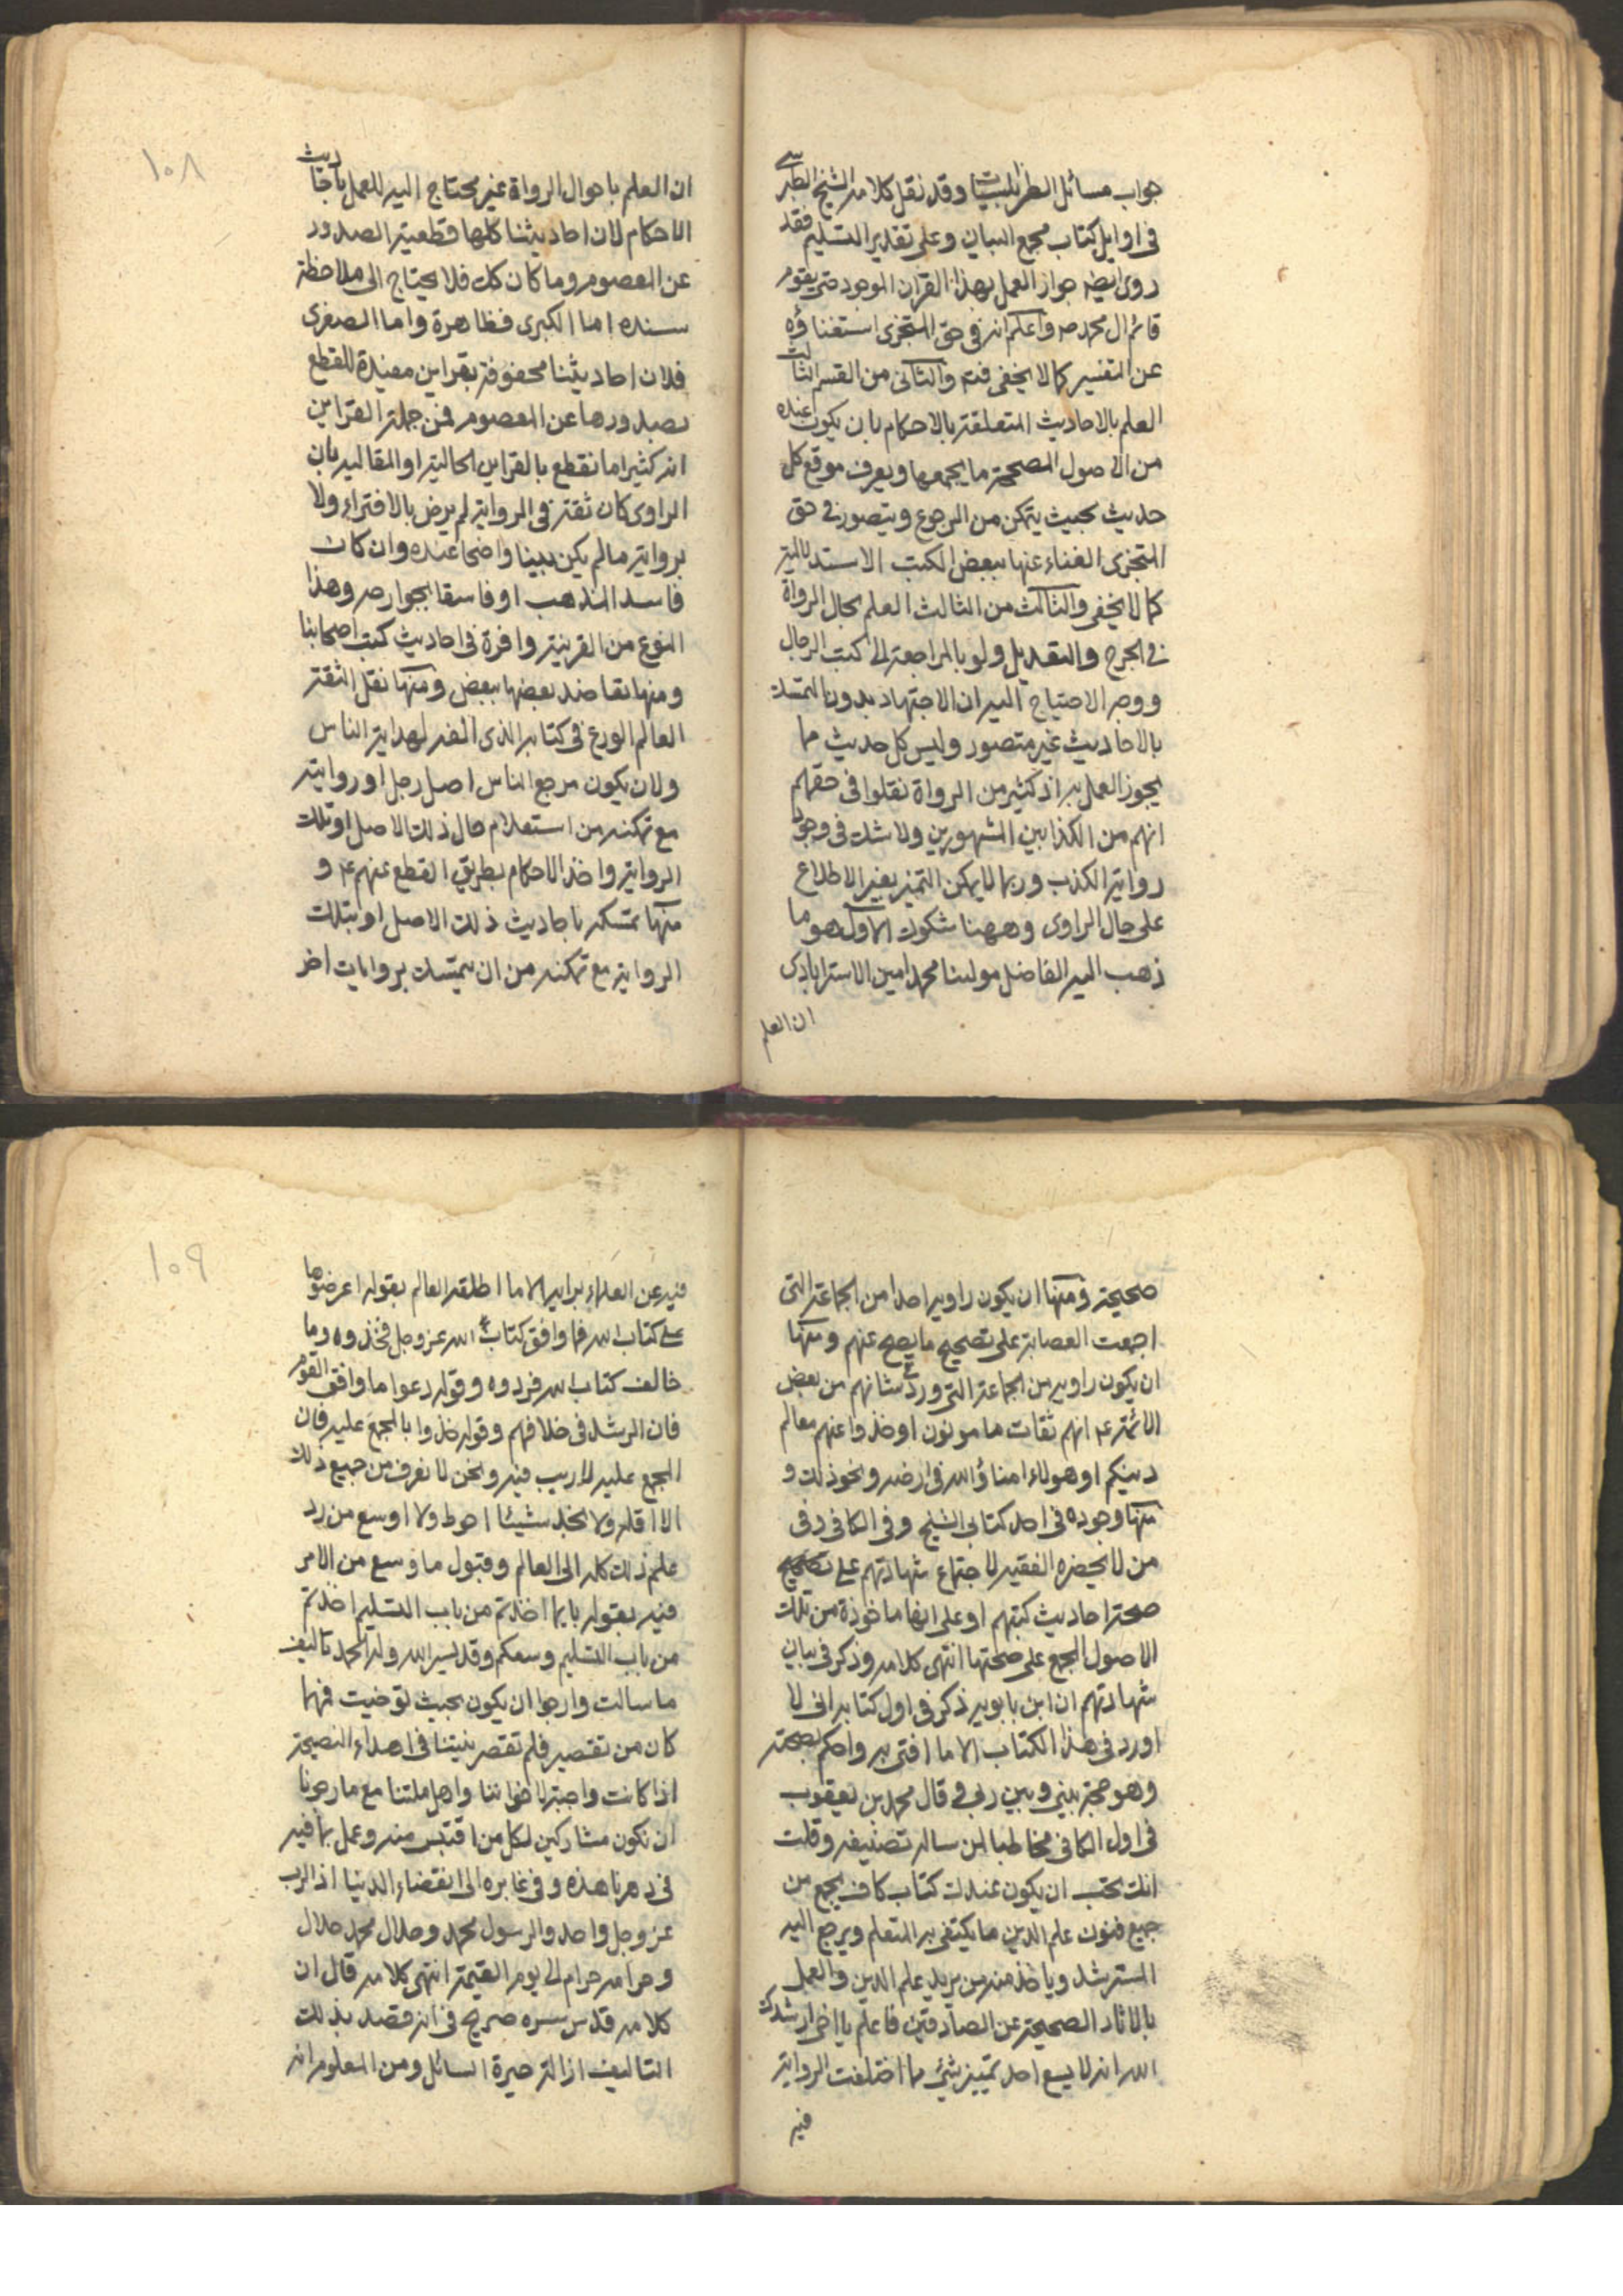 جواب مسائل الطرابلسيات وقد نقل كلامه الشيخ الطبرسي
فى اوايل كتاب مجمع البيان وعلى تقدير التسليم فقد
روى ايضه جواز العمل بهذا القران الموجود حتى يقوم
قائم ال محمد ص واعلم انه فى حق المتجزى استغناؤه
عن التفسير كما لا يخفى فتم والثانى من القسم الثالث
العلم بالاحاديث المتعلقة بالاحكام بان يكون عنده
من الاصول المصححة ما يجمعها ويعرف موقع كل
حديث بحيث يتمكن من الرجوع ويتصور فى حق
المتجزى الغناء عنها ببعض الكتب الاستدلالية
كما لا يخفى والثالث من الثالث العلم بحال الرواة
فى الجرح والتعديل ولو بالمراجعة الى كتب الرجال
ووجه الاحتياج اليه ان الاجتهاد بدون التمسك
بالاحاديث غير متصور وليس كل حديث مما
يجوز العمل به اذ كثير من الرواة نقلوا فى حقهم
انهم من الكذابين المشهورين ولا شك فى وجود
رواية الكذب وربما لا يمكن التميز بغير الاطلاع
على حال الراوى وههنا شكوك الاول هو ما
ذهب اليه الفاضل مولينا محمد امين الاسترابادى
ان العلم
١٠٨
ان العلم باحوال الرواة غير محتاج اليه للعمل باحاديث
الاحكام لان احاديثنا كلها قطعية الصدور
عن المعصوم وما كان كك فلا يحتاج الى ملاحظة
سنده اما الكبرى فظاهرة واما الصغرى
فلان احاديثنا محفوفة بقراين مفيدة للقطع
بصدورها عن المعصوم فمن جملة القراين
انه كثيرا ما نقطع بالقراين الحالية او المقالية بان
الراوى كان ثقة فى الرواية لم يرض بالافتراء ولا
برواية ما لم يكن بينا واضحا عنده وان كان
فاسد المذهب او فاسقا بجوارحه وهذا
النوع من القرينة وافرة فى احاديث كتب اصحابنا
ومنها تعاضد بعضها ببعض ومنها نقل الثقة
العالم الورع فى كتابه الذى الفه لهداية الناس
ولان يكون مرجع الناس اصل رجل او روايته
مع تمكنه من استعلام حال ذلك الاصل او تلك
الرواية واخذ الاحكام بطريق القطع عنهم ع و
منها تمسكه باحاديث ذلك الاصل او بتلك
الرواية مع تمكنه من ان يتمسك بروايات اخر
صحيحة ومنها ان يكون راويه احدا من الجماعة التى
اجمعت العصابة على تصحيح ما يصح عنهم ومنها
ان يكون راويه من الجماعة التى ورد فى شانهم من بعض
الائمة ع انهم ثقات مامونون او خذوا عنهم معالم
دينكم او هولاء امناؤ الله فى ارضه ونحو ذلك و
منها وجوده فى احد كتابى الشيخ وفى الكافى وفى
من لا يحضره الفقيه لاجتماع شهادتهم على
صحة احاديث كتبهم او على انها ماخوذة من تلك
الاصول المجمع على صحتها انتهى كلامه وذكر فى بيان
شهادتهم ان ابن بابويه ذكر فى اول كتابه انى لا
اورد فى هذا الكتاب الا ما افتى به واحكم بصحته
وهو حجة بينى وبين ربى وقال محمد بن يعقوب
فى اول الكافى مخاطبا لمن ساله تصنيفه وقلت
انك تحب ان يكون عندك كتاب كاف يجمع من
جميع فنون علم الدين ما يكتفى به المتعلم ويرجع اليه
المسترشد وياخذ منه من يريد علم الدين والعمل
بالاثار الصحيحة عن الصادقين فاعلم يا اخى ارشدك
الله انه لا يسع احد تمييز شئ مما اختلفت الرواية
فيه
١٠٩
فيه عن العلماء برايه الا ما اطلقه العالم بقوله اعرضوها
على كتاب الله فما وافق كتاب الله عز وجل فخذوه وما
خالف كتاب الله فردوه وقوله دعوا ما وافق القوم
فان الرشد فى خلافهم وقوله خذوا بالمجمع عليه فان
المجمع عليه لا ريب فيه ونحن لا نعرف من جميع ذلك
الا اقله ولا نجد شيئا احوط ولا اوسع من رد
علم ذلك كله الى العالم وقبول ما وسع من الامر
فيه بقوله بايما اخذتم من باب التسليم اخذتم
من باب التسليم وسعكم وقد يسر الله وله الحمد تاليف
ما سالت وارجوا ان يكون بحيث توخيت فمهما
كان من تقصير فلم تقصر نيتنا فى اهداء النصيحة
اذا كانت واجبة لاخواننا واهل ملتنا مع ما رجونا
ان نكون مشاركين لكل من اقتبس منه وعمل بما فيه
فى دهرنا هذه وفى غابره الى انقضاء الدنيا اذ الرب
عز وجل واحد والرسول محمد وحلال محمد حلال
وحرامه حرام الى يوم القيمة انتهى كلامه قال ان
كلامه قدس سره صريح فى انه قصد بذلك
التاليف ازالة حيرة السائل ومن المعلوم انه